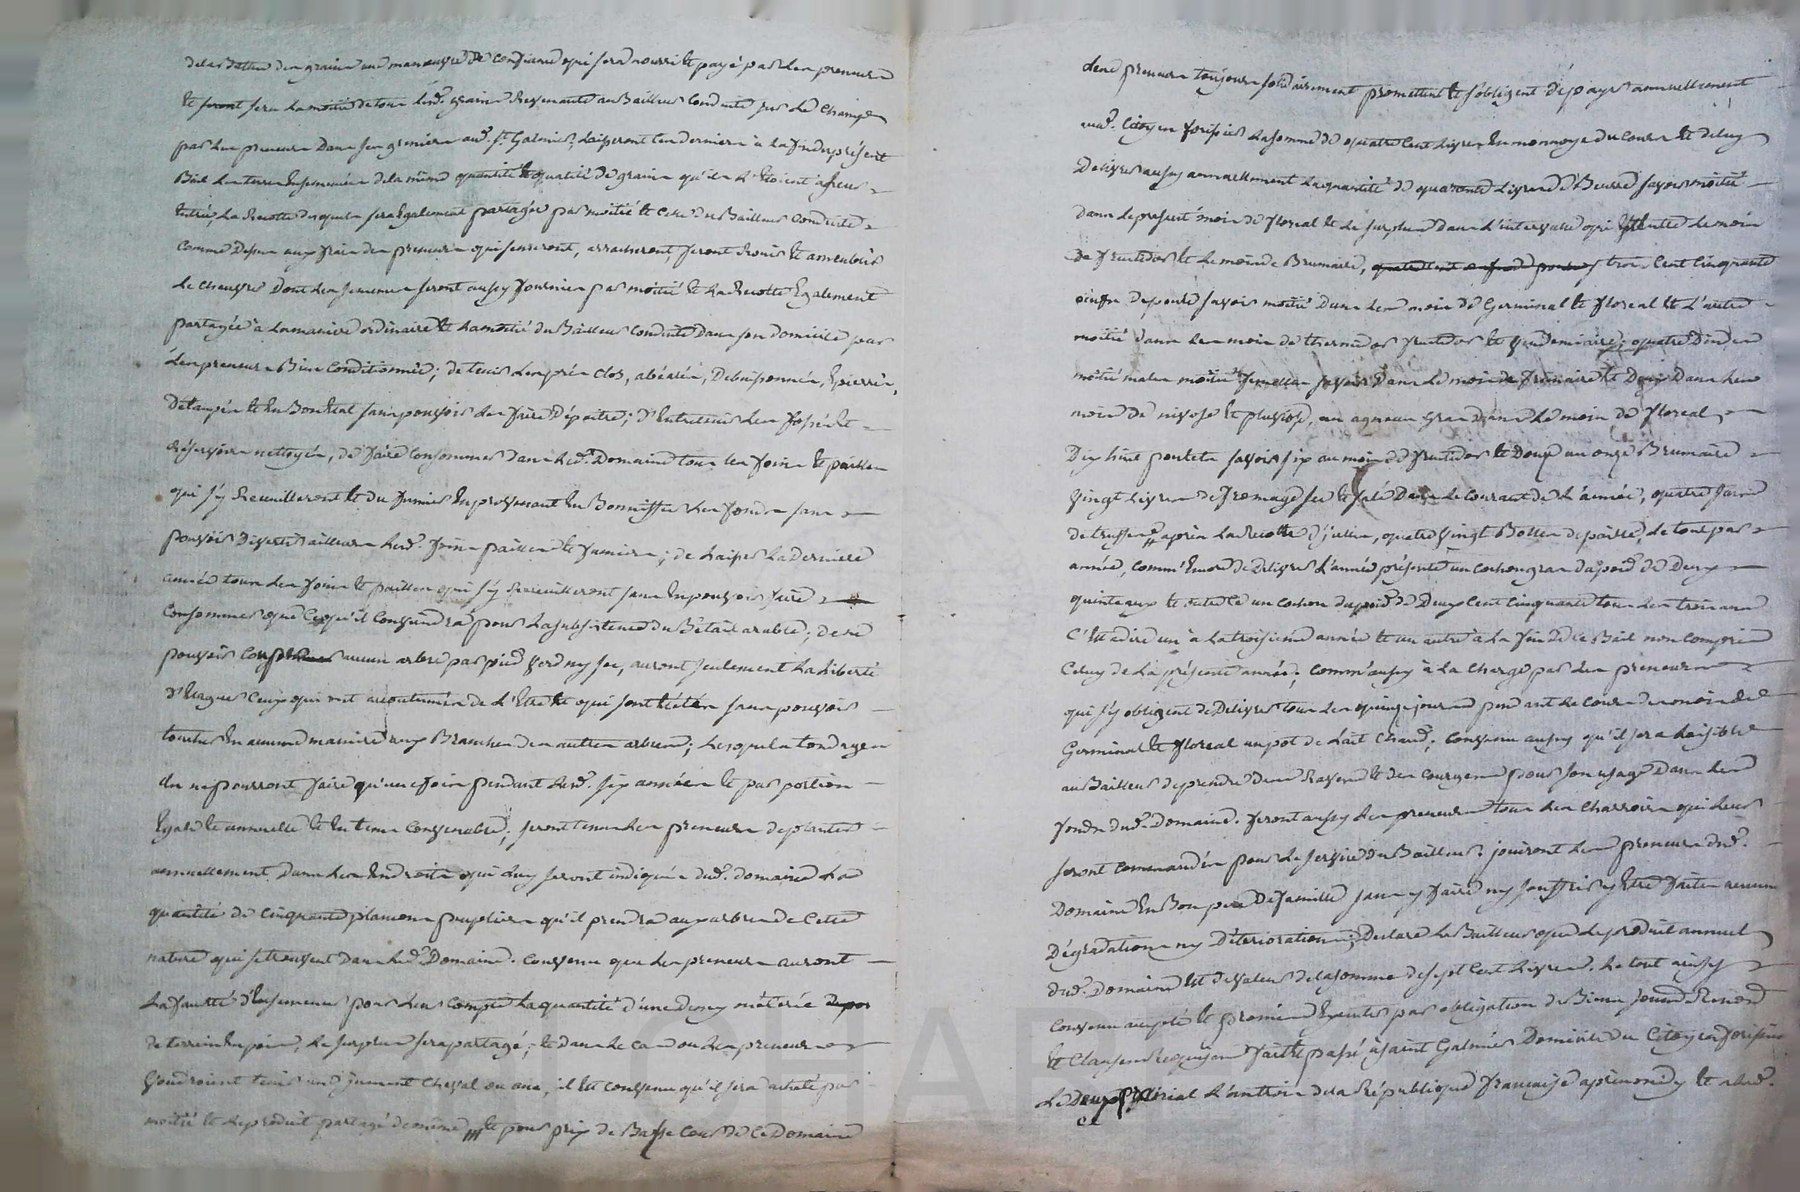 de la Battue des grains un manœuvre de confiance qui sera nourri et payé par les preneurs
et seront sera la moitié de tous lesd. grains revenante au Bailleur conduite sur les champs
par les preneurs dans son grenier aud. St. Galmier; laisseront ces derniers à la fin du présent
Bail les terres ensemencées de la même quantité et qualité de grains qu'elles l'étoient à leur
entrée, la Recolte desquels sera également partagée par moitié et celle du Bailleur conduite
comme dessus aux frais des preneurs qui semeront, arracheront, feront Rouir et
le chanvre dont les semences seront aussy fournies par moitié et la Recolte Egalement
partagée à la maniere ordinaire et la moitié du Bailleur conduite dans son domicile par
les preneurs Bien Conditionnée; de tenir les prés clos, abéalés, Debuissonnés, Epierrés,
Detaupés et en Bon Etat sans pouvoir les faire Dépaitre; d'Entretenir les fossés et
Réservoirs nettoyés, de faire Consommer dans led. Domaine tous les foins et pailles
qui s'y Recueilleront et du fumier en provenant en Bonniffier les fonds sans
pouvoir Divertir ailleurs lesd. foins pailles et fumiers; de Laisser La derniere
année tous les foins et pailles qui s'y Recueilleront sans en pouvoir faire
Consommer que Ce qu'il Conviendra pour La subsistence du Bétail arable; de ne
pouvoir Couper aucun arbre par pied verd ny sec, auront seulement La liberté
d'Elaguer Ceux qui ont accoutumés de L'Etre et qui sont têtés sans pouvoir
toucher En aucune maniere aux Branches des autres arbres; Lesquels tondages
ils ne pourront faire qu'une fois pendant lesd. six années et par portion
Egale et annuelle et En tems Convenable; seront tenus les preneurs de planter
annuellement dans les Endroits qui luy seront indiqués dud. domaine la
quantité de Cinquante plansons peupliers qu'il prendra aux arbres de Cette
nature qui se trouvent dans led. Domaine. Convenu que les preneurs auront
La faculté d'Ensemencer pour leur Compte La quantité d'une demy méterée
de terrein en pois, le surplus sera partagé; et dans le cas ou les preneurs
Voudroient tenir une jument Cheval ou ane, il est convenu qu'il sera acheté par
moitié et le produit partagé de même et pour prix de Basse Cour de Ce Domaine
Lesd. preneurs toujours solidairement promettent et s'obligent de payer annuellement
aud. Citoyen forissier La somme de quatre Cent Livres En monnoye du Cours et de luy
Delivrer aussy annuellement La quantité de quarante Livres de Beurre savoir moitié
dans le present mois de floreal et le surplus dans l'intervalle qui Etente le mois
de fructidor et le mois de Brumaire, trois Cent Cinquante
œufs de poule savoir moitié dans les mois de Germinal et floreal et L'autre
moitié dans les mois de thermidor fructidor et vendemiaire; quatre Dindes
moitié males moitié femelles savoir dans le mois de frimaire et Deux Dans les
mois de nivose et pluviose, un agneau Gras dans le mois de floreal
Dix huit poulets savoir six au mois de fructidor et Douze au onze Brumaire
Vingt Livres de fromage sec et salé Dans le courant de L'année, quatre
de truffes après La Recolte d'icelles, quatre Vingt Bottes de paille, Le tout par
année, comm' Encore de Delivrer L'année présente un cochon gras du poid de Deux
quintaux et outre Ce un cochon du poid de Deux Cent Cinquante tous les trois ans
C'est à dire un à la troisieme année et un autre à La fin de Ce Bail non Compris
Celuy de La présente année; comm' aussy à La Charge par les preneurs
qui s'y obligent de Delivrer tous les quinze jours pendant le cours des mois de
Germinal et floreal un pot de Lait Chaud; Convenu aussy qu'il sera Loisible
au Bailleur de prendre des Raves et des Courges pour son usage Dans les
fonds dud. Domaine. feront aussy les preneurs tous les Charrois qui leur
seront Comandés pour le service du Bailleur. jouiront les preneurs dud.
Domaine En Bon pere De famille sans y faire ny souffrir y Etre faites aucune
Dégradations ny Déteriorations; Declare le Bailleur que le produit annuel
dud. Domaine Est de valeur de la somme de sept Cent Livres. Le tout ainsy
Convenu accepté et promis Executer par obligation de Biens soumis Renon
et Clauses Requises fait et passé à Saint Galmier Domicile du Citoyen forissier
le Deux prairial L'an trois de la République française après midy et aled.